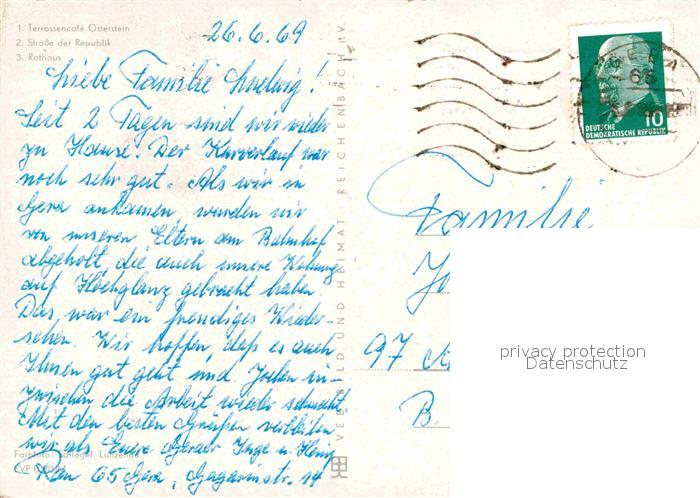 1. Terrassencafé Osterstein
2. Straße der Republik
3. Rathaus
26.6.69
Liebe Familie !
Seit 2 Tagen sind wir wieder
zu Hause. Der Kurverlauf war
noch sehr gut. Als wir in
Gera ankamen, wurden wir
von unseren Eltern am Bahnhof
abgeholt, die auch unsere Wohnung
auf Hochglanz gebracht haben.
Das war ein freudiges Wieder-
sehen. Wir hoffen, daß es auch
Ihnen gut geht und Jochen in-
zwischen die Arbeit wieder schmeckt.
Mit den besten Grüßen verbleiben
wir als Eure Geraer Inge u. Heinz
65 Gera, Gagarinstr. 14
Farbfoto: Schlegel,
VEB BILD UND HEIMAT REICHENBACH I. V.
GERA
10
DEUTSCHE
DEMOKRATISCHE REPUBLIK
Familie
Jo
97
B.
privacy protection
Datenschutz